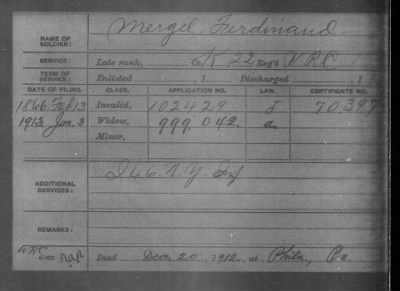 NAME OF SOLDIER: Mergel, Ferdinand.
SERVICE: Late rank, K 22 Reg't V.R.C.
TERM OF SERVICE: Enlisted , 1 Discharged , 1
DATE OF FILING. CLASS. APPLICATION NO. LAW. CERTIFICATE NO.
1866. Feb 13 Invalid, 102429 70,397
1913 Jan. 3 Widow, 999.042. a.
Minor,
ADDITIONAL SERVICES: I 46. N.Y. Inf
REMARKS:
Died Dec. 20, 1912, at Phila, Pa.